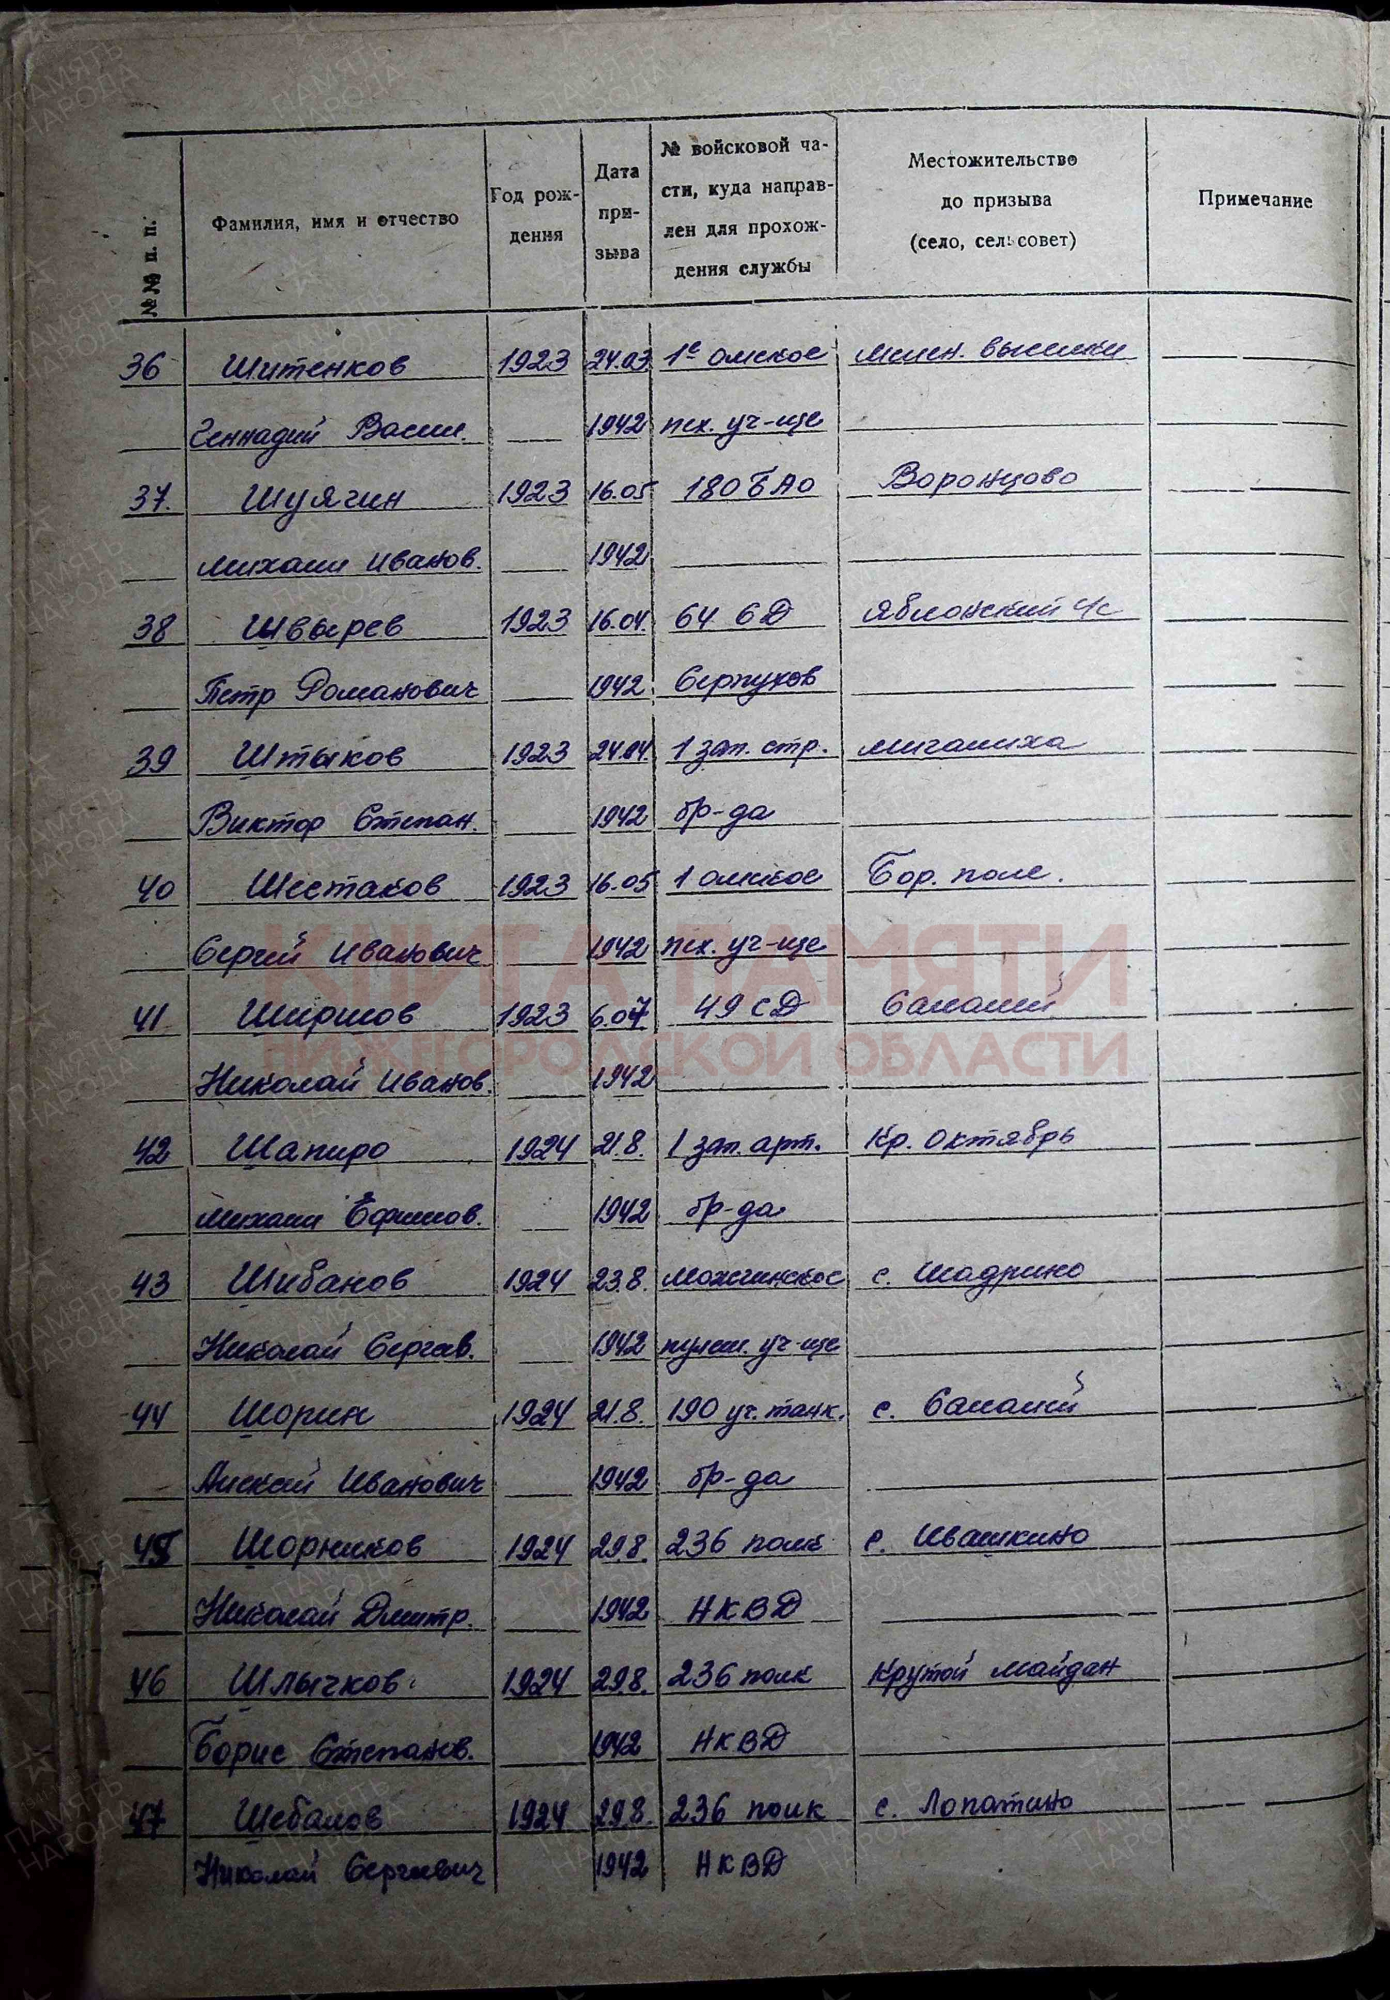 №№ п. п.
Фамилия, имя и отчество
Год рож-
дения
Дата
при-
зыва
№ войсковой ча-
сти, куда направ-
лен для прохож-
дения службы
Местожительство
до призыва
(село, сельсовет)
Примечание
36 Шитенков 1923 24.03 1е омское выселки
Геннадий Васил. 1942 пех. уч-ще
37. Шуягин 1923 16.05 180 БАО Воронцово
Михаил Иванов. 1942
38 Швырев 1923 16.04. 64 СД Яблонский ч/с
Петр Романович 1942 Серпухов
39 Штыков 1923 24.04. 1 зап. стр. Мигалиха
Виктор Степан. 1942 бр-да
40 Шестаков 1923 16.05 1 омское Бор. поле.
Сергей Иванович 1942 пех. уч-ще
КНИГА ПАМЯТИ
41 Ширшов 1923 6.07 49 СД
НИЖЕГОРОДСКОЙ ОБЛАСТИ
Николай Иванов. 1942
42 Шапиро 1924 21.8. 1 зап. арт. Кр. Октябрь
Михаил Ефимов. 1942 бр-да
43 Шибанов 1924 23.8. Можгинское с. Шадрино
Николай Сергеев. 1942 пулем. уч-ще
44 Шорин 1924 21.8. 190 уч. танк. с.
Алексей Иванович 1942 бр-да
45 Шорников 1924 29.8. 236 полк с. Ивашкино
Николай Дмитр. 1942 НКВД
46 Шлычков 1924 29.8. 236 полк Крутой Майдан
Борис Степанов. 1942 НКВД
47 Шебалов 1924 29.8. 236 полк с. Лопатино
Николай Сергеевич 1942 НКВД